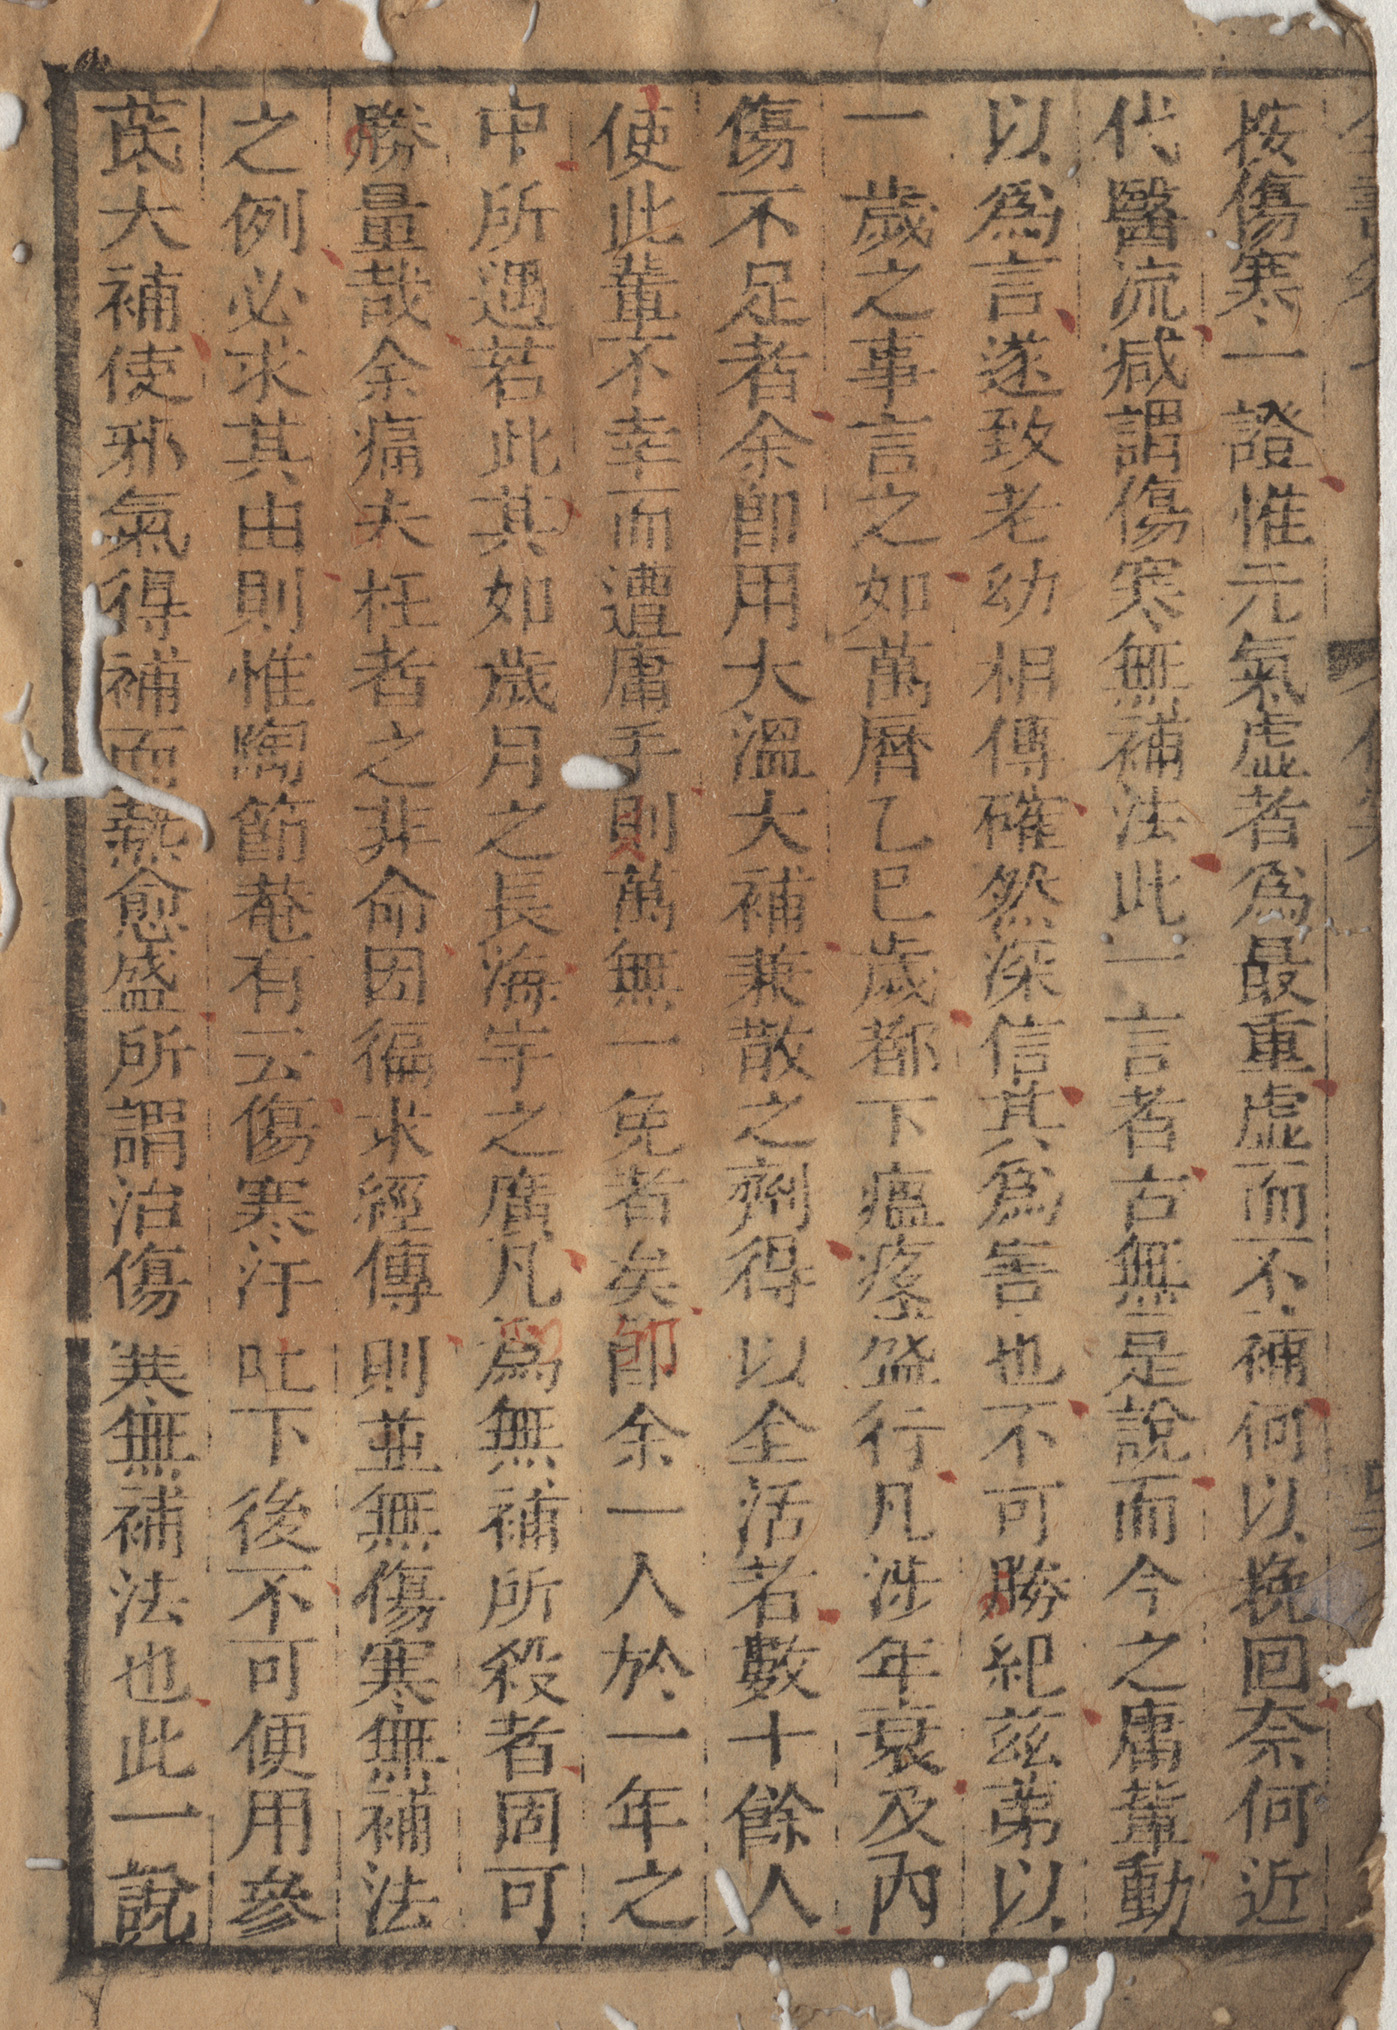 按傷寒一證惟元氣虛者爲最重虛而不補何以挽回奈何近
代醫流咸謂傷寒無補法此一言者古無是說而今之庸輩動
以爲言遂致老幼相傳確然深信其爲害也不可勝紀茲第以
一歲之事言之如萬曆乙巳歲都下瘟疫盛行凡涉年衰及內
傷不足者余卽用大溫大補兼散之劑得以全活者數十餘人
使此輩不幸而遭庸手則萬無一免者矣卽余一人於一年之
中所遇若此其如歲月之長海宇之廣凡爲無補所殺者固可
勝量哉余痛夫枉者之非命因徧求經傳則並無傷寒無補法
之例必求其由則惟陶節菴有云傷寒汗吐下後不可便用參
茋大補使邪氣得補而熱愈盛所謂治傷寒無補法也此一說